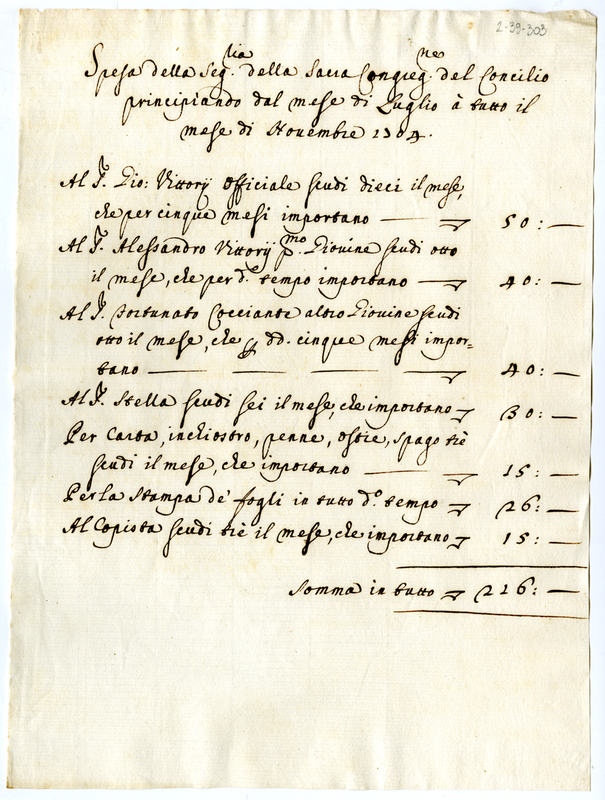 2-39-303
Spesa della Seg.ria della Sacra Congreg.ne del Concilio
principiando dal mese di Luglio à tutto il
mese di Novembre 1704.
Al S. Gio: Vittorij Officiale scudi dieci il mese,
che per cinque mesi importano — 50: —
Al S. Alessandro Vittorij p.mo Giovine scudi otto
il mese, che per d.o tempo importano — 40: —
Al S. Fortunato Cocciante altro Giovine scudi
otto il mese, che p dd. cinque mesi impor=
tano — — — — 40: —
Al S. Stella scudi sei il mese, che importano 30: —
Per Carta, inchiostro, penne, ostie, spago trè
scudi il mese, che importano — 15: —
Per la stampa de' fogli in tutto d.o tempo 26: —
Al Copista scudi trè il mese, che importano 15: —
Somma in tutto 216: —